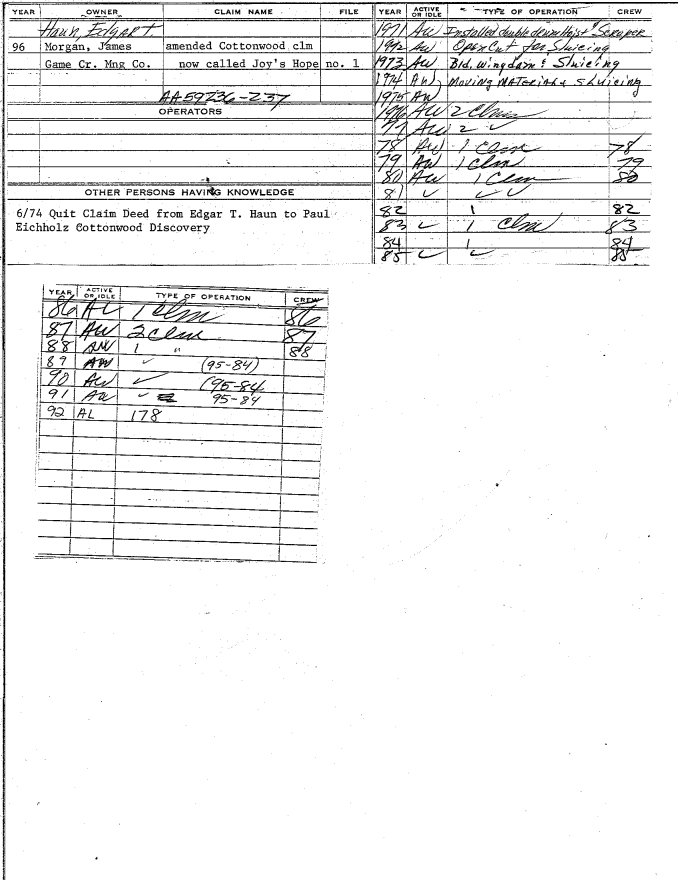 YEAR OWNER CLAIM NAME FILE
Haun, Edgar T.
96 Morgan, James amended Cottonwood clm
Game Cr. Mng Co. now called Joy's Hope no. 1
AA59236-237
OPERATORS
OTHER PERSONS HAVING KNOWLEDGE
6/74 Quit Claim Deed from Edgar T. Haun to Paul
Eichholz Cottonwood Discovery
YEAR ACTIVE OR IDLE TYPE OF OPERATION CREW
1971 AW Installed double drum Hoist & Scraper
1972 AW Open Cut for Sluicing
1973 AW Bld. wingdam & Sluicing
1974 AW Moving Material & Sluicing
1975 AW
1976 AW 2 Clms
77 AW 2 ✓
78 AW 1 Clm 78
79 AW 1 Clm 79
80 AW 1 Clm 80
81 ✓ ✓ ✓
82 1 82
83 ✓ 1 Clm 83
84 1 84
85 ✓ ✓ 85
YEAR ACTIVE OR IDLE TYPE OF OPERATION CREW
86 AL 1 Clm 86
87 AW 2 Clm 87
88 AW 1 " 88
89 AW ✓ (95-84)
90 AW ✓ (95-84
91 AW ✓ 95-84
92 AL 178